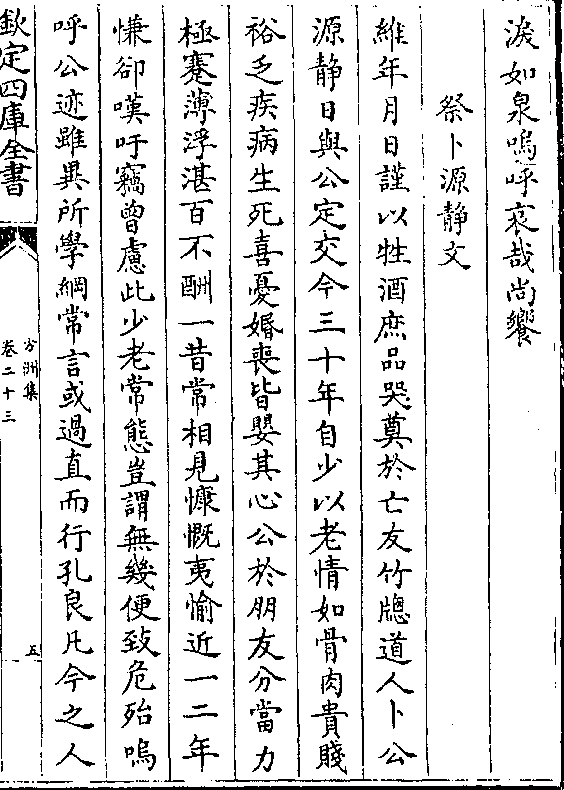 淚如泉嗚呼哀哉尚饗
祭卜源靜文
維年月日謹以牲酒庶品哭奠於亡友竹牕道人卜公
源静日與公定交今三十年自少以老情如骨肉貴賤
裕乏疾病生死喜憂婚喪皆嬰其心公於朋友分當力
極蹇薄浮湛百不酬一昔常相見慷慨夷愉近一二年
慊卻嘆吁竊曾慮此少老常態豈謂無幾便致危殆嗚
呼公迹雖異所學綱常言或過直而行孔良凡今之人
欽定四庫全書
方洲集
卷二十三
五